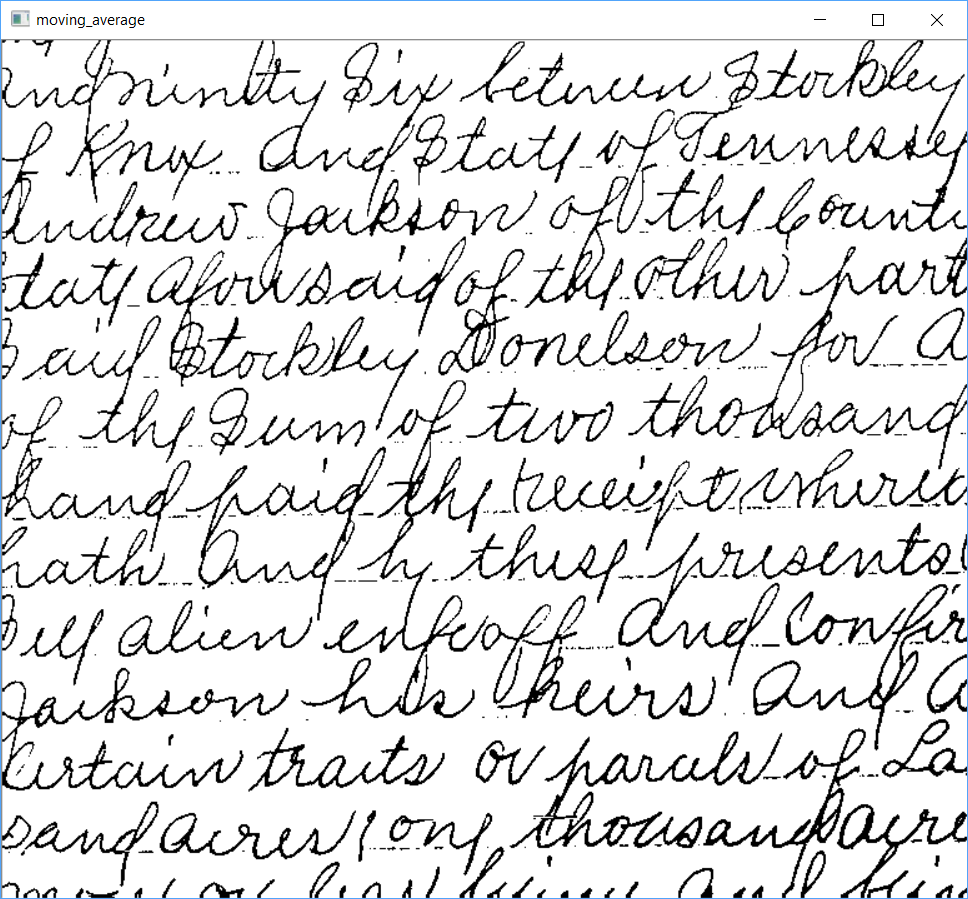 moving_average
and ninty Six between Stockley
of Knox And State of Tennessey
Andrew Jackson of the County
State Aforesaid of the other part
Said Stockley Donelson for A
of the Sum of two thousand
hand paid the receipt where
hath And by these presents
Sell alien enfeoff And Confir
Jackson his heirs And A
Certain tracts or parcels of La
sand acres one thousand acre
more or less being and bein